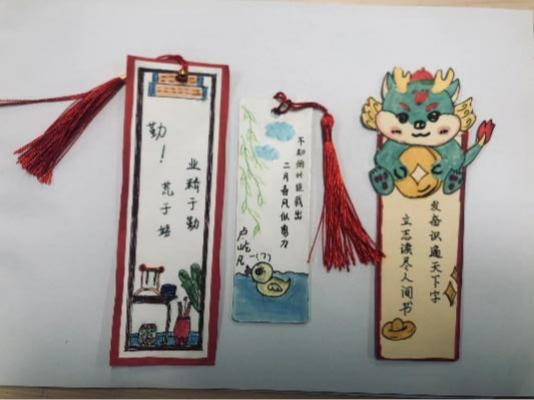 勤！
业精于勤
荒于嬉
不知细叶谁裁出
二月春风似剪刀
卢屹凡
一(7)
发奋识遍天下字
立志读尽人间书